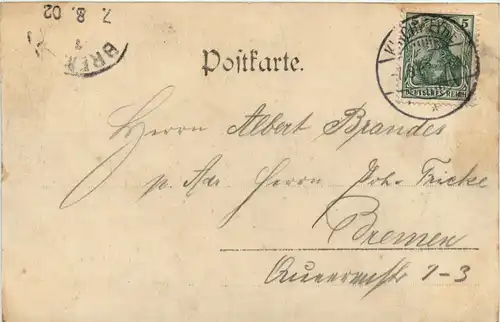 7. 8. 02
BREM
5
DEUTSCHES REICH
Postkarte.
Herrn Albert Brandes
p. Adr Herrn Joh. Fricke
Bremen
1-3